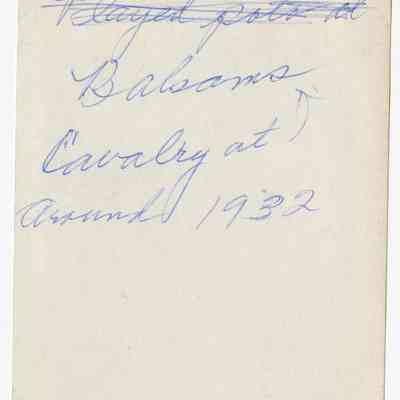 Played polo at
Balsams
Cavalry at
around 1932